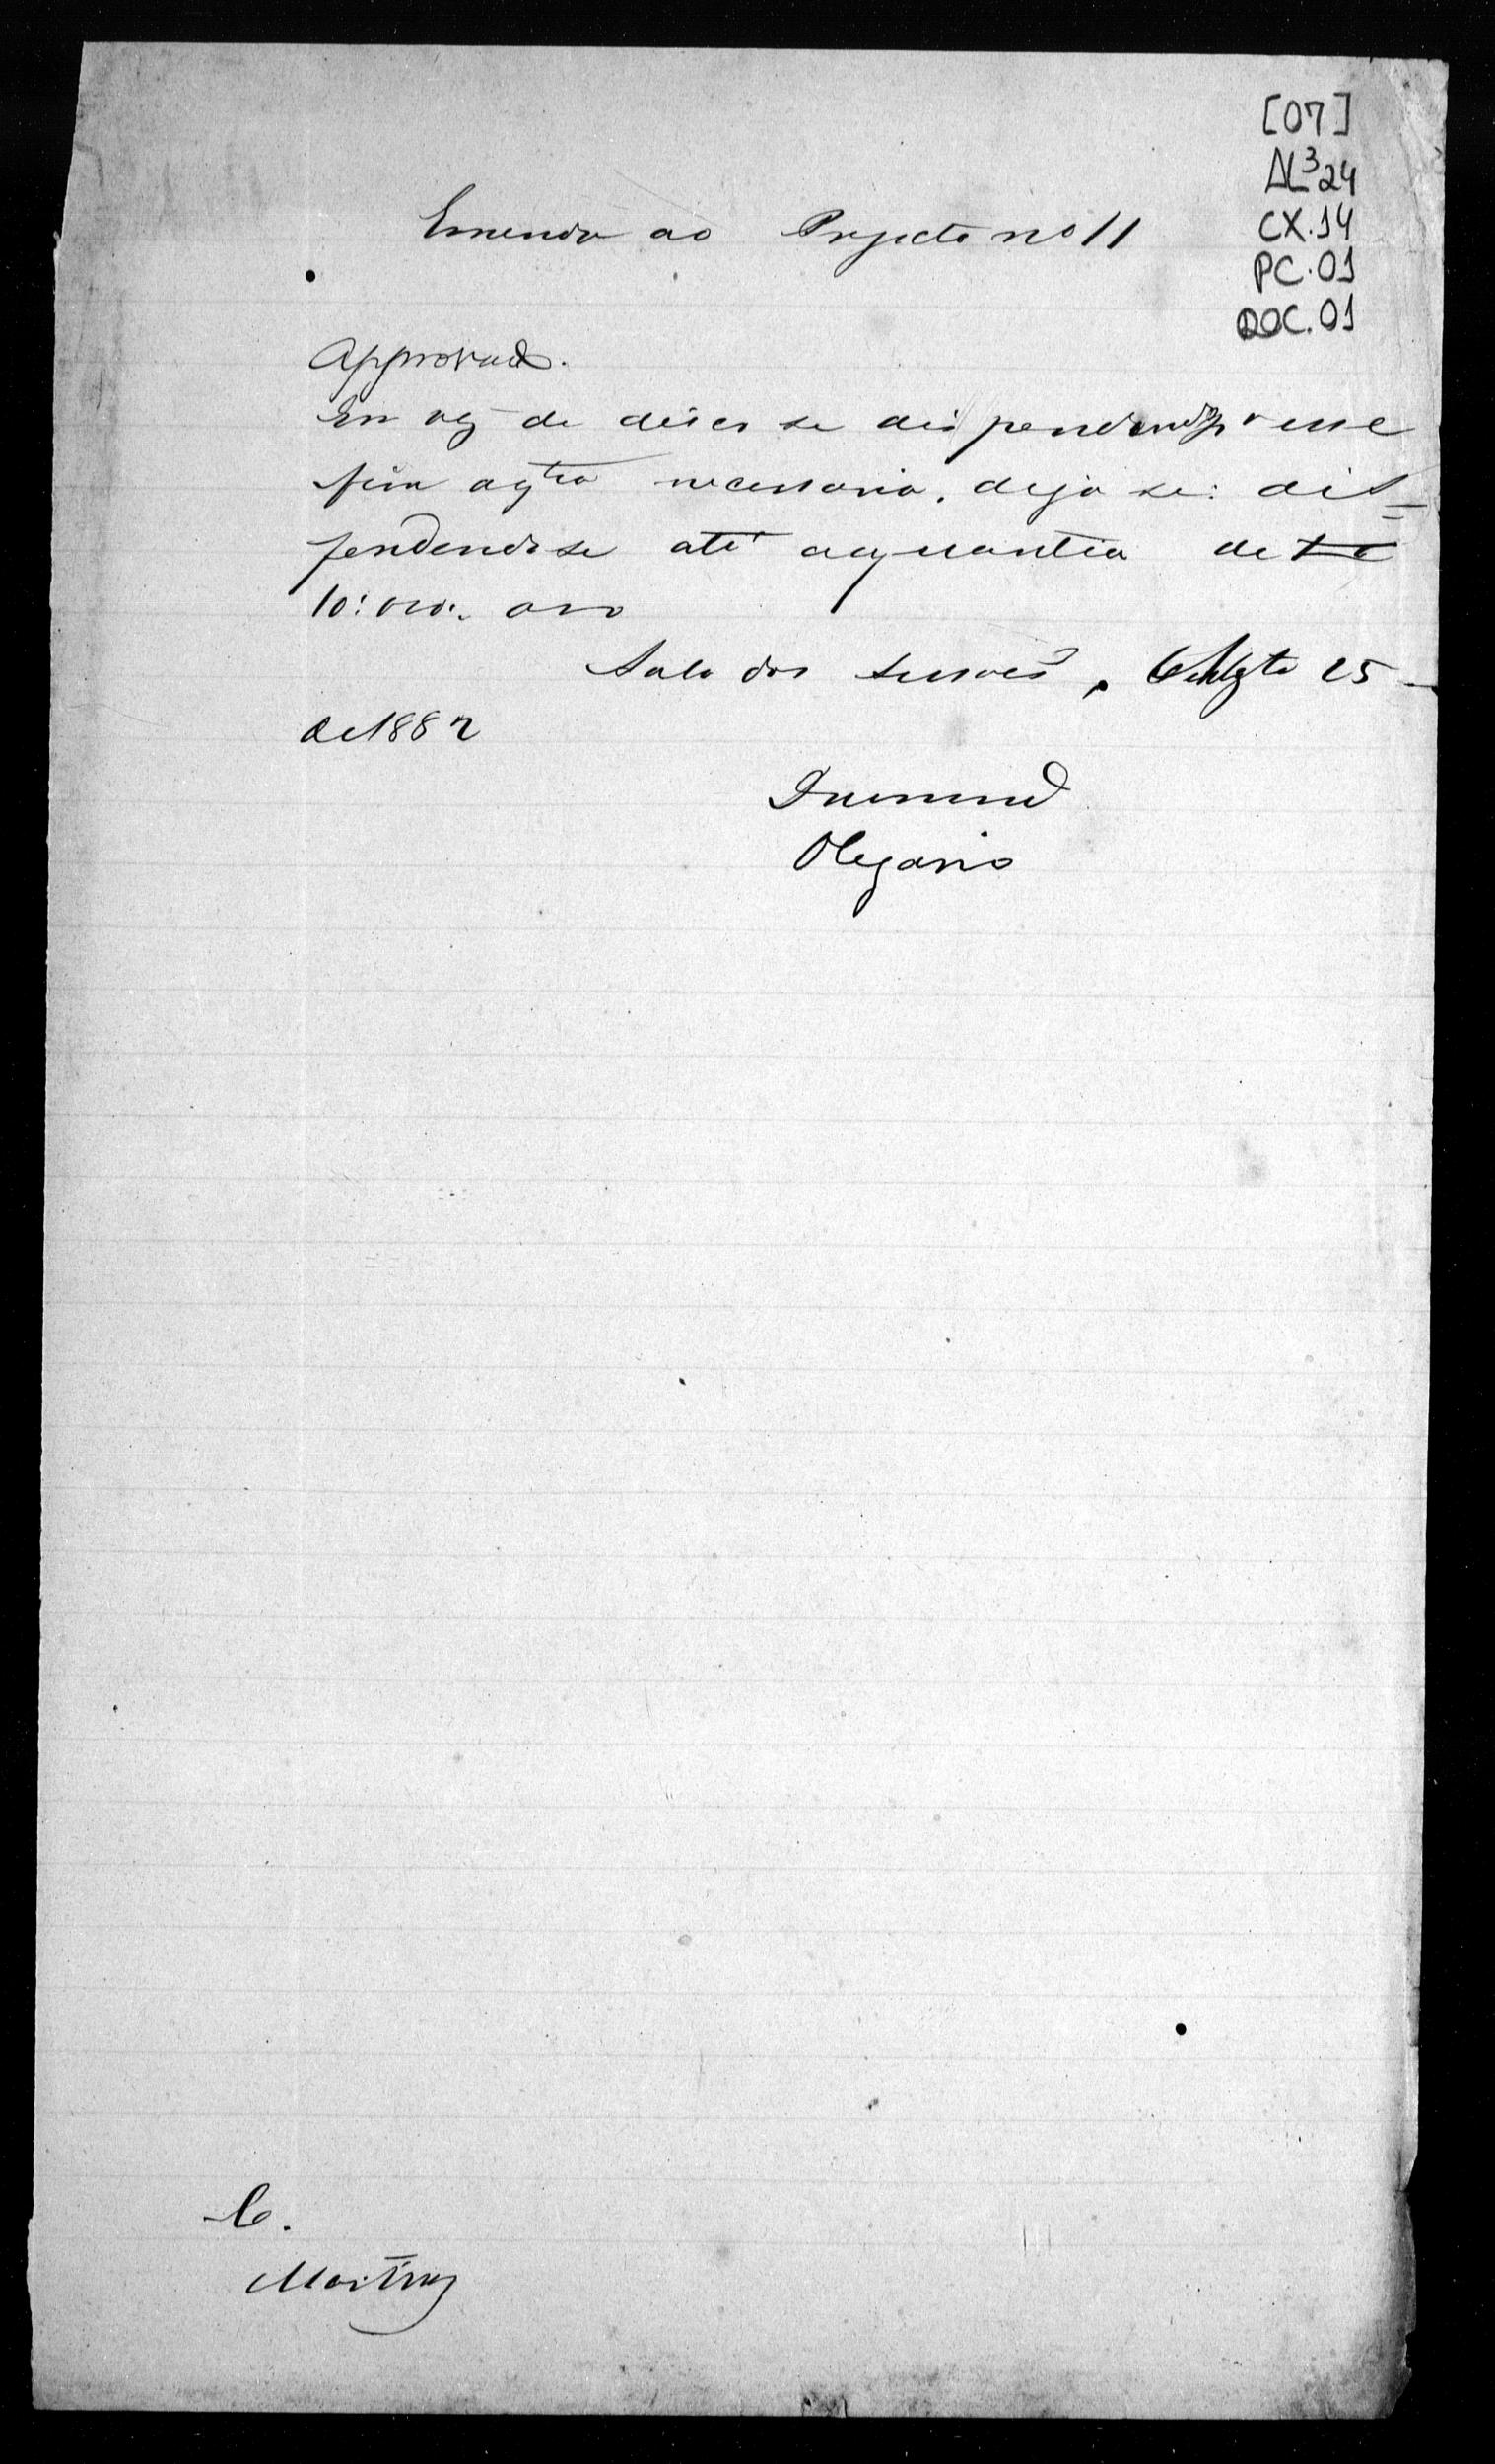 [07]
AL³24
CX.14
PC.01
DOC.01
Emenda ao Projecto nº 11
Approvado.
Em vez de diser se dispendendo pª esse
fim aqtia necessaria, diga se: dis=
pendendo se até aquantia de
10:000. 000
Sala das sessões, 25
de 1882
Drumund
Olegario
C.
Martins